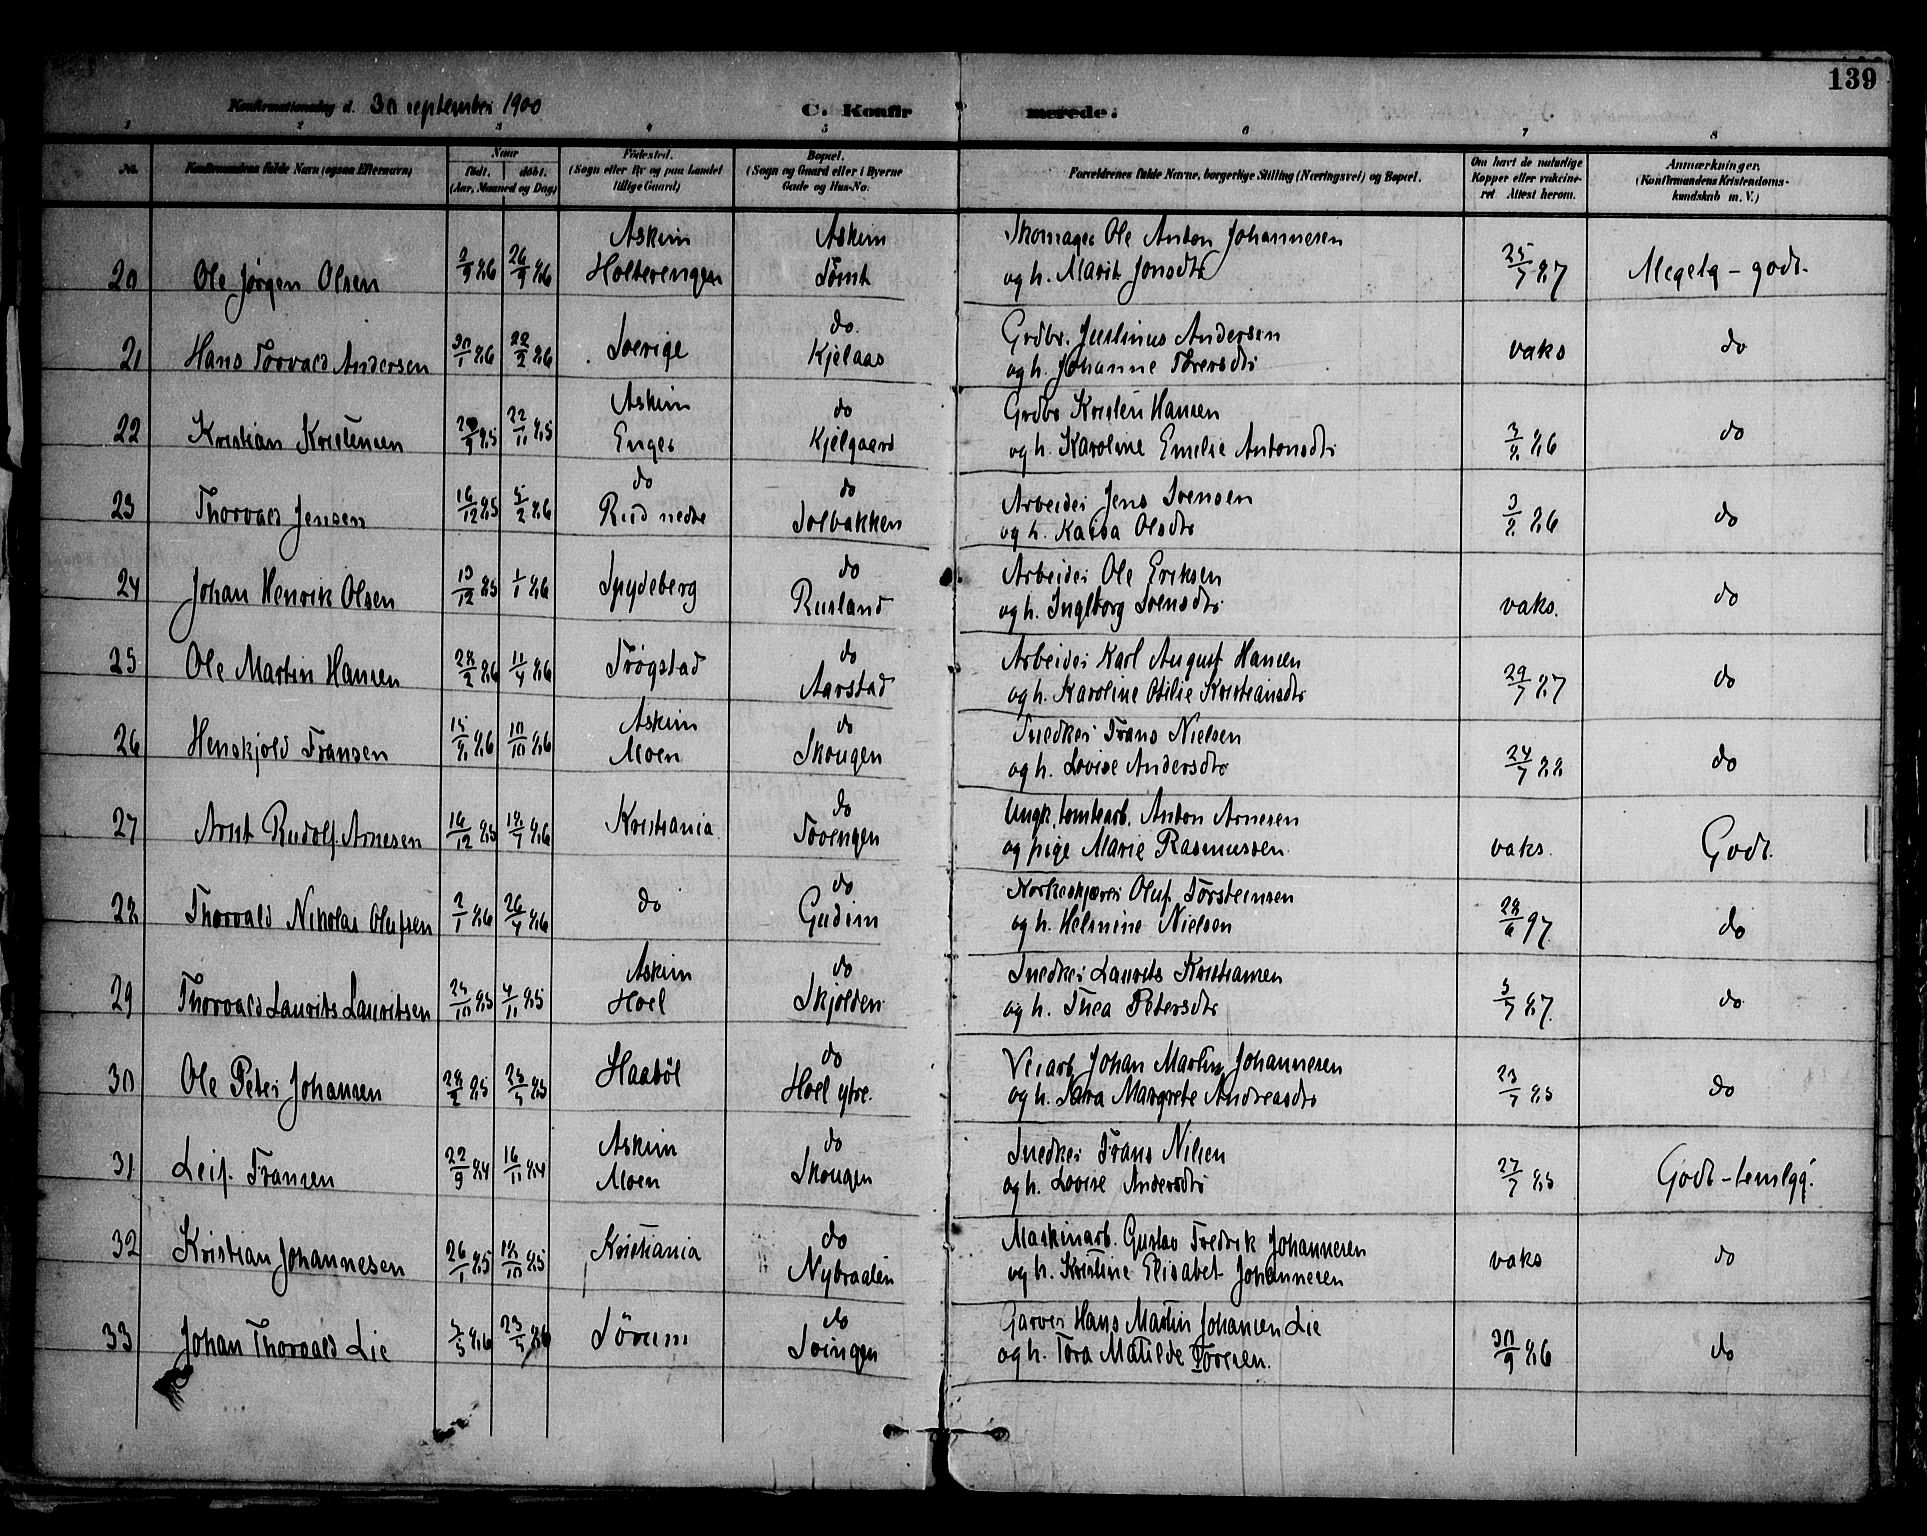 139
Konfirmationsdag d. 30 september 1900 C. Konfirmerede.
1 2 3 4 5 6 7 8
No. Konfirmandens fulde Navn (ogsaa Efternavn) Naar født. døbt. (Aar, Maaned og Dag) Fødested. (Sogn eller By og paa Landet tillige Gaard) Bopæl. (Sogn og Gaard eller i Byerne Gade og Hus-No. Forældrenes fulde Navne, borgerlige Stilling (Næringsvei) og Bopæl. Om havt de naturlige Kopper eller vakcineret Attest herom. Anmærkninger. (Konfirmandens Kristendomskundskab m. V.)
Askim Askim Skomager Ole Anton Johannesen
20 Ole Jørgen Olsen 2/9 86 26/9 86 Holterengen Tømt og h. Marit Jonsdtr 25/7 87 Megetg - godt.
do. Grdbr. Justinus Andersen
21 Hans Torvald Andersen 30/1 86 22/2 86 Sverige Kjelaas og h. Johanne Torersdtr vaks do
Askim do Grdbr Kristen Hansen
22 Kristian Kristensen 29/9 85 22/11 85 Enger Kjelgaard og h. Karoline Emelie Antonsdtr 3/8 86 do
do do Arbeider Jens Svensen
23 Thorvald Jensen 16/12 85 5/2 86 Rud nedre Solbakken og h. Kaisa Olsdtr 3/8 86 do
do Arbeider Ole Eriksen
24 Johan Henrik Olsen 13/12 85 1/1 86 Spydeberg Rusland og h. Ingeborg Svensdtr vaks. do
do Arbeider Karl August Hansen
25 Ole Martin Hansen 28/2 86 11/4 86 Trøgstad Aarstad og h. Karoline Otilie Kristiansdtr 29/7 87 do
Askim do Snedker Frans Nielsen
26 Henskjold Fransen 15/8 86 10/10 86 Moen Skougen og h. Lovise Andersdtr 24/7 88 do
do Ungk. tomtearb. Anton Arnesen
27 Arnt Rudolf Arnesen 16/12 85 18/7 86 Kristiania Tovengen og pige Marie Rasmussen vaks. Godt.
do Korkeskjærer Oluf Torsteinsen
28 Thorvald Nikolai Olufsen 2/1 86 26/4 86 do Gudim og h. Helmine Nielsen 28/6 97 do
Askim do Snedker Laurits Kristiansen
29 Thorvald Laurits Lauritsen 24/10 85 4/11 85 Hoel Skjolden og h. Thea Petersdtr 5/7 87 do
do Veiarb. Johan Martin Johannesen
30 Ole Peter Johansen 28/2 85 25/5 85 Haabøl Hoel ytre. og h. Sara Margrete Andreasdtr 23/7 85 do
Askim do Snedker Frans Nilsen
31 Leif Fransen 22/9 84 16/11 84 Moen Skougen og h. Lovise Andersdtr 27/7 85 Godt - temlgg.
do Maskinarb. Gustav Fredrik Johannesen
32 Kristian Johannesen 26/1 85 18/10 85 Kristiania Nybraaten og h. Kristine Elisabet Johannesen vaks do
do Garver Hans Martin Johansen Lie
33 Johan Thorvald Lie 5/5 86 23/5 86 Sørum Svingen og h. Tora Matilde Toresen. 30/9 86 do